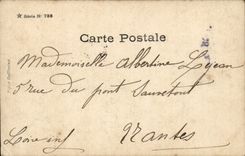 ★ Série N° 788
Carte Postale
Mademoiselle Albertine Lyean
5 rue du pont Sauvetout
Loire inf
Nantes